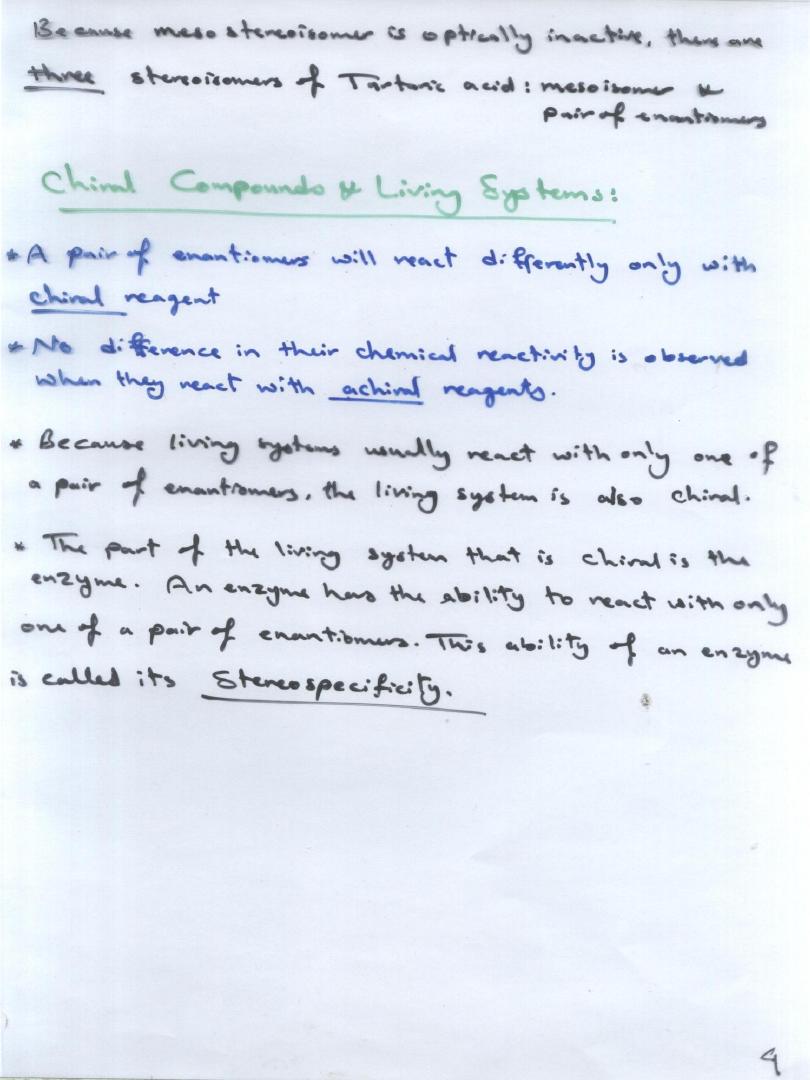 Because meso stereoisomer is optically inactive, there are
three stereoisomers of Tartaric acid : meso isomer &
pair of enantiomers
Chiral Compounds & Living Systems:
* A pair of enantiomers will react differently only with
chiral reagent
* No difference in their chemical reactivity is observed
when they react with achiral reagents.
* Because living systems usually react with only one of
a pair of enantiomers, the living system is also chiral.
* The part of the living system that is chiral is the
enzyme. An enzyme has the ability to react with only
one of a pair of enantiomers. This ability of an enzyme
is called its Stereospecificity.
9